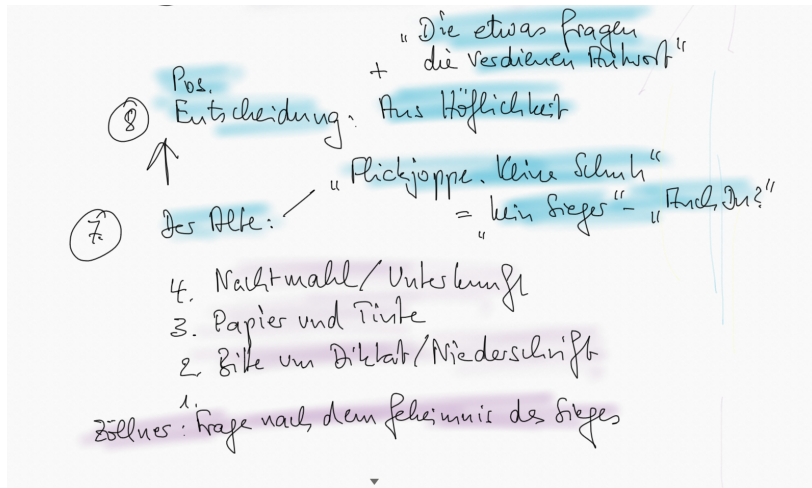 „Die etwas fragen
+ die verdienen Antwort“
Pos.
8 Entscheidung: Aus Höflichkeit
„Flickjoppe. Keine Schuh“
7. Der Alte: = „kein Sieger“ – „Auch Du?“
4. Nachtmahl/Unterkunft
3. Papier und Tinte
2. Bitte um Diktat/Niederschrift
1.
Zöllner: Frage nach dem Geheimnis des Sieges